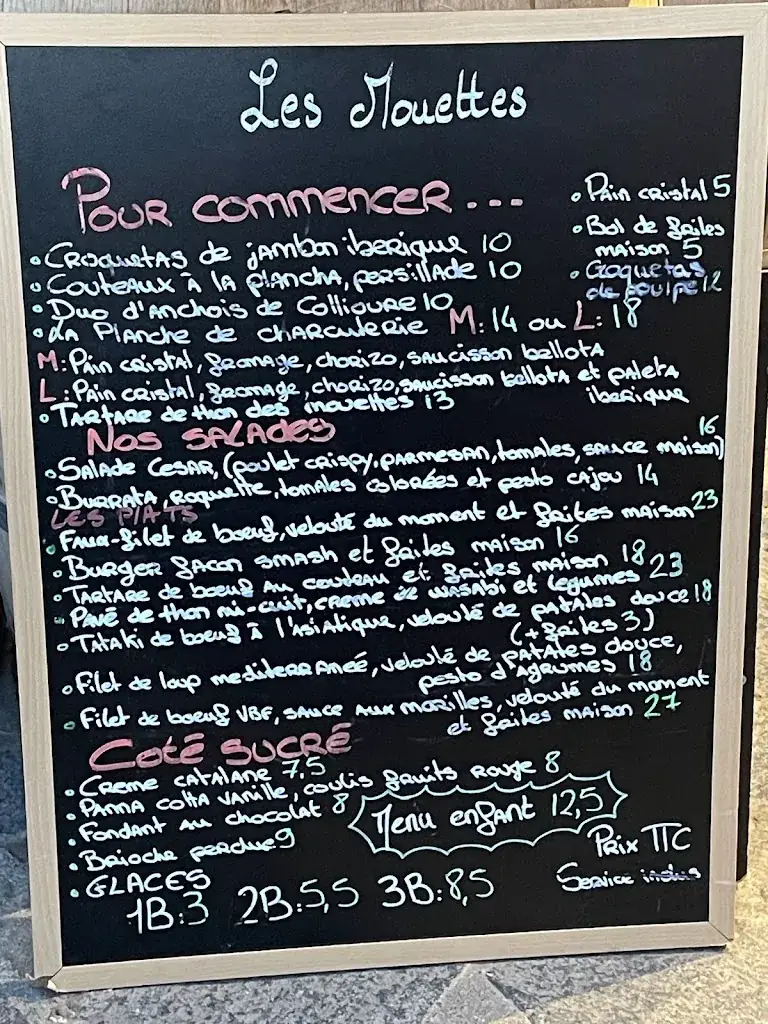 Les Mouettes
Pour commencer...
• Croquetas de jambon iberique 10
• Couteaux à la plancha, persillade 10
• Duo d'anchois de Collioure 10
• La Planche de charcuterie M: 14 ou L: 18
M: Pain cristal, fromage, chorizo, saucisson bellota
L: Pain cristal, fromage, chorizo, saucisson bellota et paleta
iberique
• Tartare de thon des mouettes 13
• Pain cristal 5
• Bol de frites
maison 5
• Croquetas
de poulpe 12
Nos salades
• Salade Cesar, (poulet crispy, parmesan, tomates, sauce maison) 16
• Burrata, roquette, tomates colorées et pesto cajou 14
Les Plats
• Faux-filet de boeuf, velouté du moment et frites maison 23
• Burger façon smash et frites maison 16
• Tartare de boeuf au couteau et frites maison 18
• Pavé de thon mi-cuit, creme de wasabi et legumes 23
• Tataki de boeuf à l'asiatique, velouté de patates douce 18
(+ frites 3)
• Filet de loup mediterraneé, velouté de patates douce,
pesto d'agrumes 18
• Filet de boeuf VBF, sauce aux morilles, velouté du moment
et frites maison 27
Coté sucré
• Creme catalane 7,5
• Panna cotta vanille, coulis fruits rouge 8
• Fondant au chocolat 8
• Brioche perdue 9
• Glaces
1B: 3 2B: 5,5 3B: 8,5
Menu enfant 12,5
Prix TTC
Service inclus